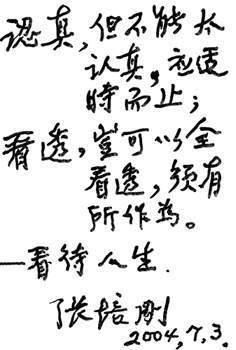 認真,但不能太
认真,应适
時而止;
看透,豈可以全
看透,须有
所作為。
—看待人生.
张培刚
2004,7,3.